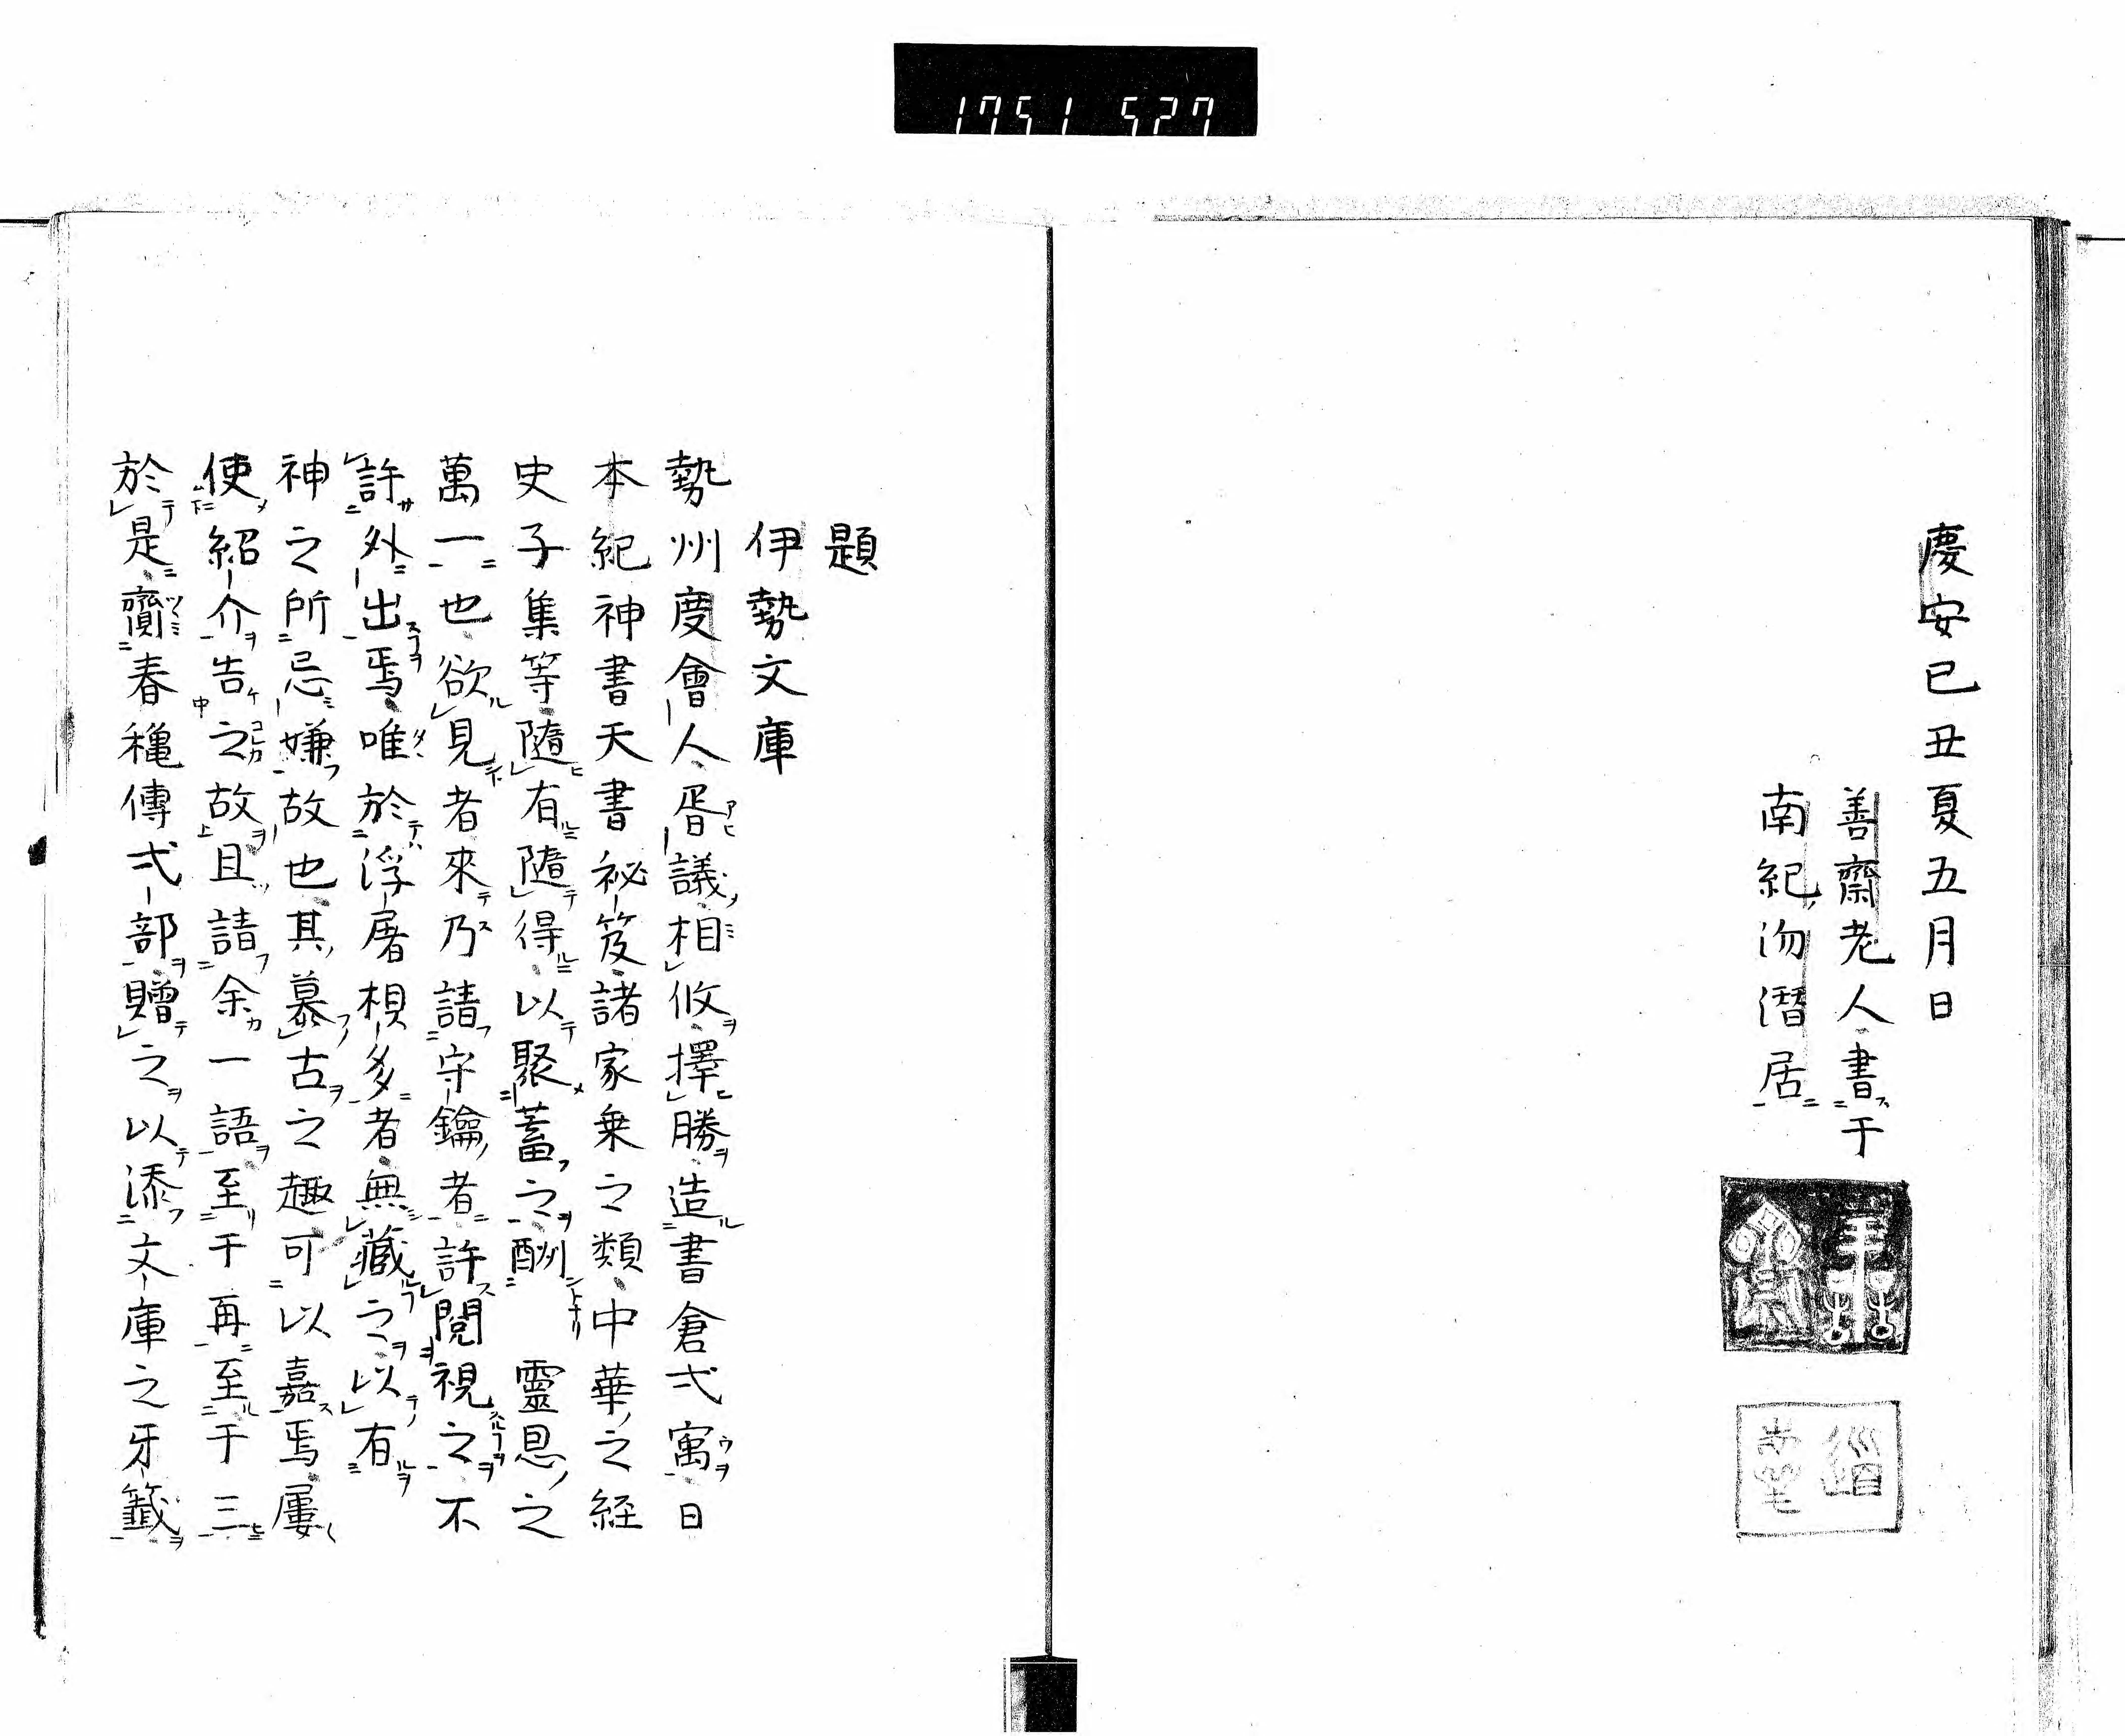 1751 527
慶安已丑夏五月日
善齋老人書于
南紀沕潛居
題
伊勢文庫
勢州度會人胥議相攸擇勝造書倉弌寓日
本紀神書天書祕笈諸家乗之類中華之経
史子集等隨有隨得以聚蓄之酬　靈恩之
萬一也欲見者來乃請守鑰者許閲視之不
許外出焉唯於浮屠椇多者無藏之以有
神之所忌嫌故也其慕古之趣可以嘉焉屢
使紹介告之故且請余一語至于再至于三
於是齎春龝傳弌部贈之以添文庫之牙籤